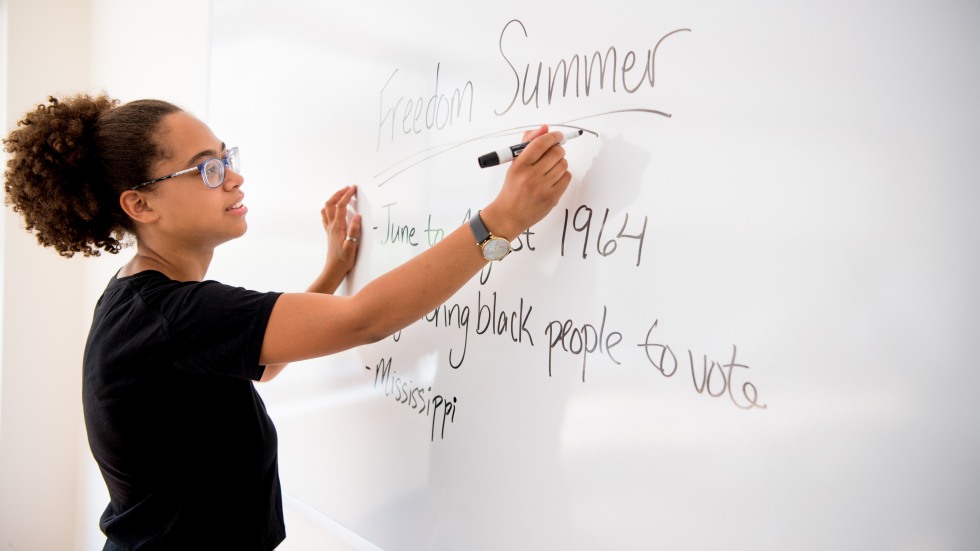 Freedom Summer
- June to August 1964
black people to vote
- Mississippi